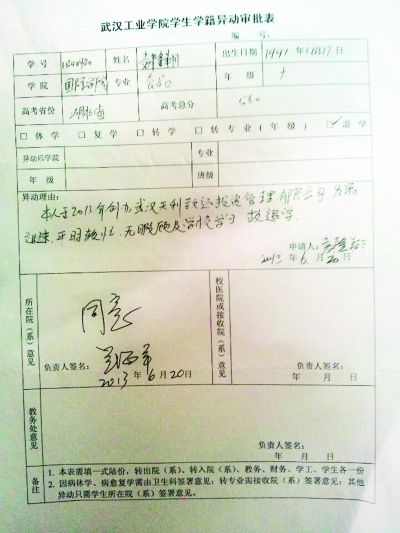 武汉工业学院学生学籍异动审批表
编 号:
学 号 姓名 出生日期 1991年12月17日
学 院 专业 年 级
高考省份 湖北省 高考总分 560
□ 休 学 □ 复 学 □ 转 学 □ 转 专 业 ( 年 级 ) ☑ 退 学
异动后学院 专业
年 级 班级
异动理由:
本人于2013年创办武汉天利 投资管理有限公司
平时较忙,无暇顾及学校学习 故退学.
申请人:
2013年 6月 20日
所在院(系)意见
同意
负责人签名:
2013年6月20日
校医院或接收院(系)意见
负责人签名:
年 月 日
教务处意见
负责人签名:
年 月 日
备注
1. 本表需填一式陆份,转出院(系)、转入院(系)、教务、财务、学工、学生各一份
2. 因病休学、病愈复学需由卫生科签署意见;转专业需接收院(系)签署意见;其他
异动只需学生所在院(系)签署意见。